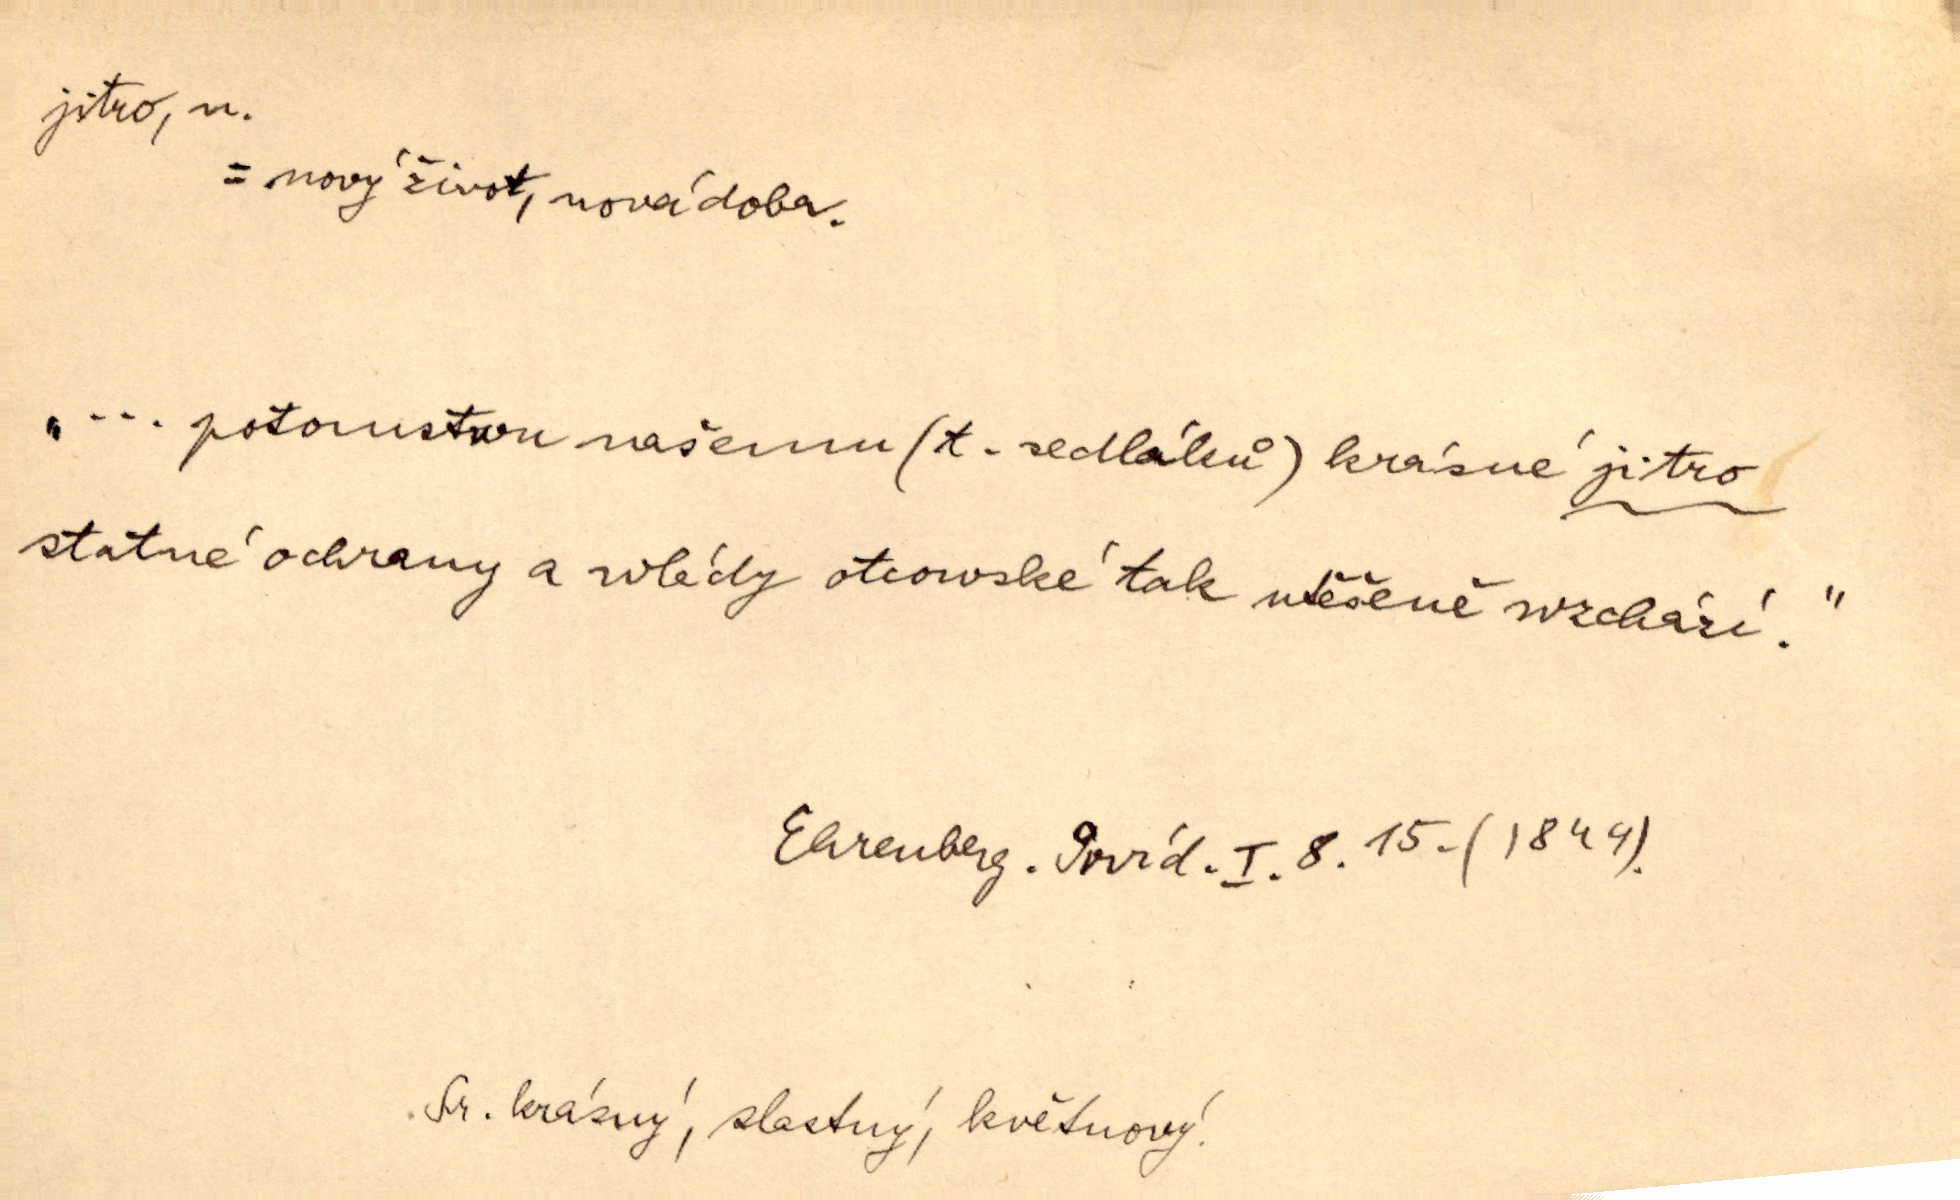 jitro, n.
= nový život, nová doba.
„ - - . potomstwu našemu (t. sedláků) krásné jitro
statné ochrany a wlády otcowské tak utěšeně wzchází."
Ehrenberg. Povíd. I. 8. 15. (1844).
Sr. krásný, slastný, květnový.